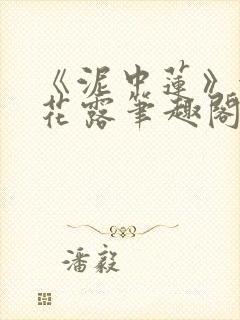 《泥中莲》
花露笔趣阁
潘毅